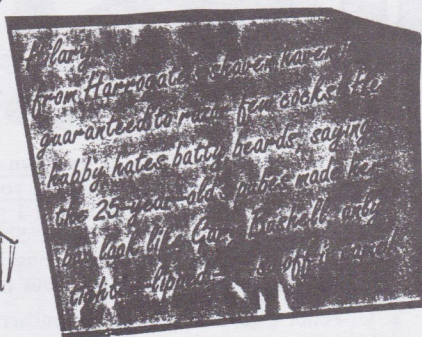 Hilary
from Harrogate's shaven haven is
guaranteed to raise a few cocks! Her
hubby hates batty beards, saying
the 25-year-old's pubes made her
box look like Gary Boshell, only
tighter-lipped off it came!